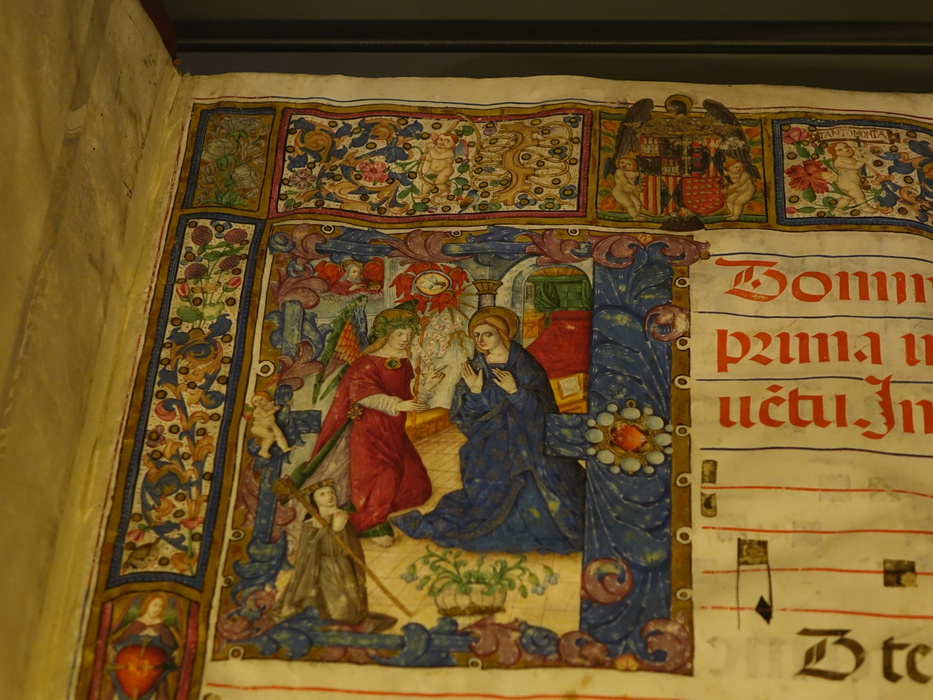 TANTOMONTA
Domin
prima in
uctu. In
te